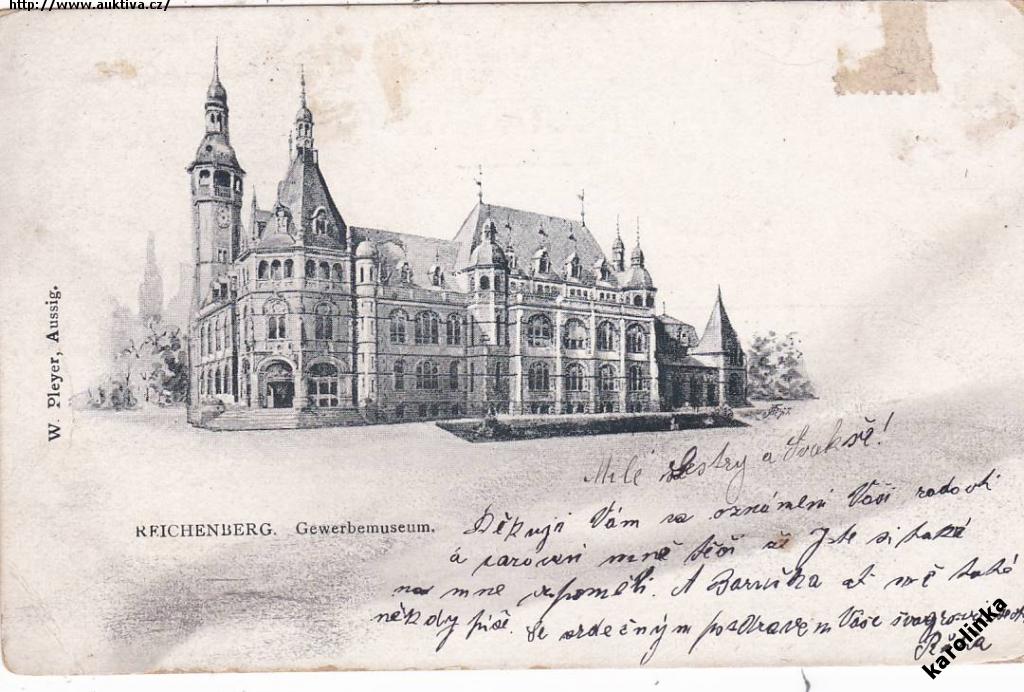 http://www.auktiva.cz/
W. Pleyer, Aussig.
REICHENBERG. Gewerbemuseum.
Milé Sestry a Svakře!
Děkuji Vám za oznámení Vaší radosti
a zároveň mně těší že Jste si také
na mne zpoměli. A Baruška ať mě také
někdy píše. Se srdečným pozdravem Vaše švagrová
karolinka